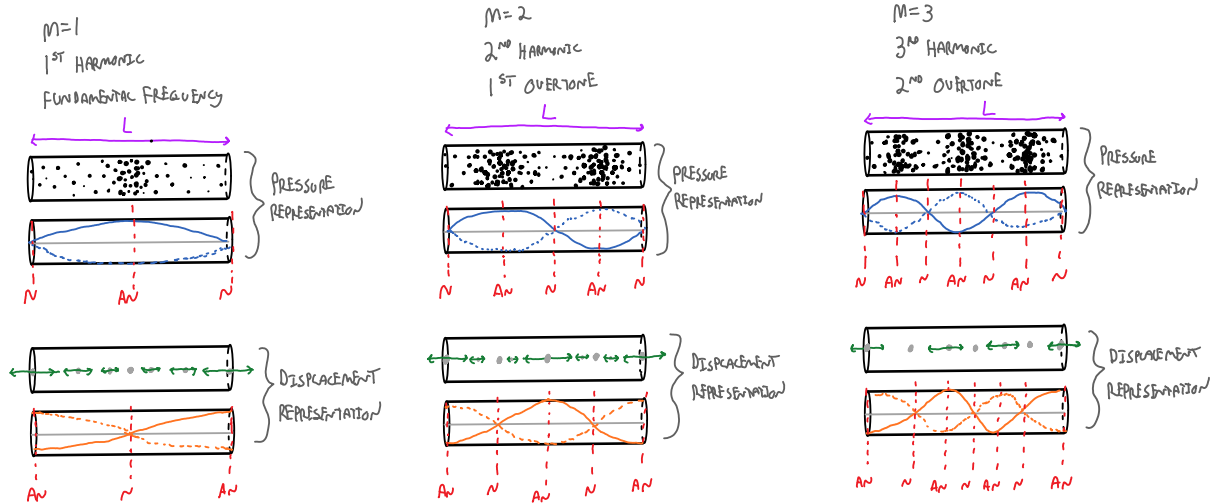 M=1
1ST HARMONIC
FUNDAMENTAL FREQUENCY
L
PRESSURE
REPRESENTATION
N AN N
DISPLACEMENT
REPRESENTATION
AN N AN
M=2
2ND HARMONIC
1ST OVERTONE
L
PRESSURE
REPRESENTATION
N AN N AN N
DISPLACEMENT
REPRESENTATION
AN N AN N AN
M=3
3RD HARMONIC
2ND OVERTONE
L
PRESSURE
REPRESENTATION
N AN N AN N AN N
DISPLACEMENT
REPRESENTATION
AN N AN N AN N AN